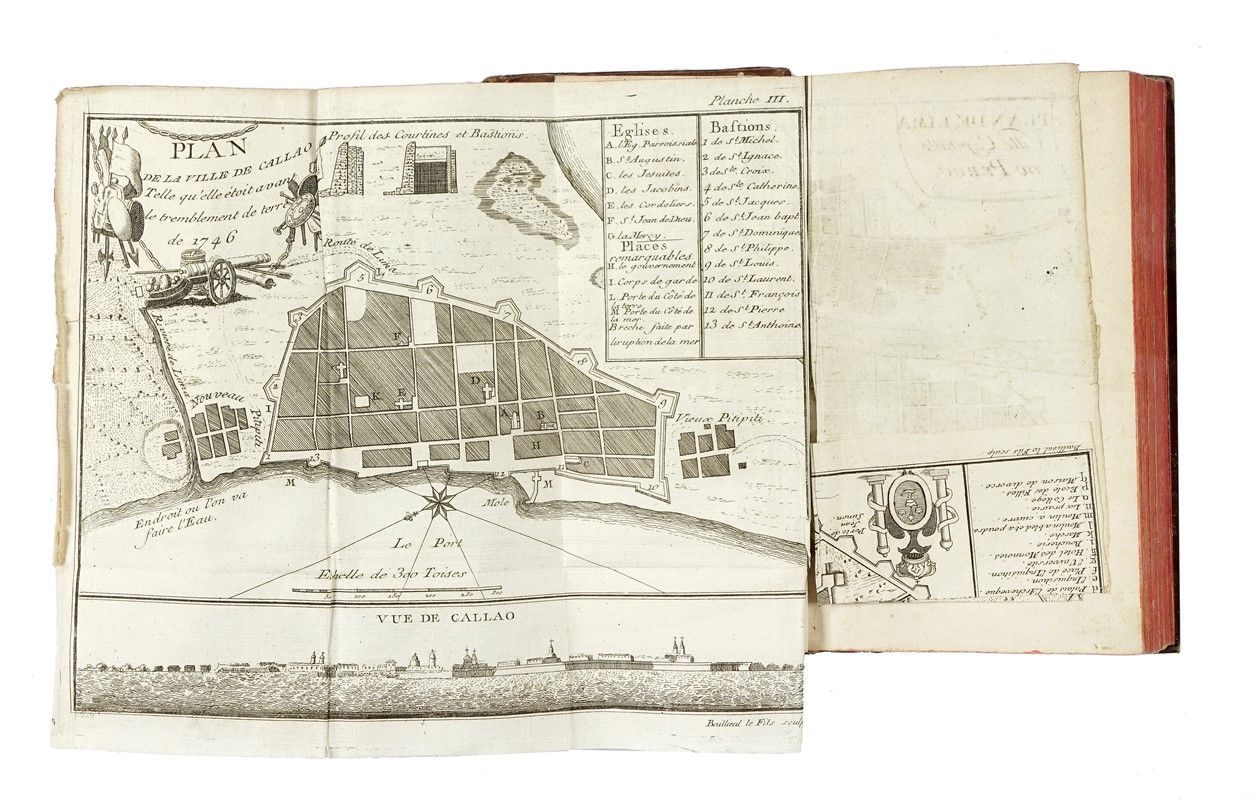 Planche III.
PLAN
DE LA VILLE DE CALLAO
Telle qu'elle étoit avant
le tremblement de terre
de 1746
Profil des Courtines et Bastions.
Eglises.
A. l'Eg. Parroissiale
B. St. Augustin.
C. les Jesuites.
D. les Jacobins.
E. les Cordeliers.
F. St. Jean de Dieu.
G. la Mercy.
Places
remarquables
H. le gouvernement
I. Corps de garde
L. Porte du Côté de
la terre
M Porte du Côté de
la mer
Breche faite par
liruption de la mer
Bastions.
1 de St. Michel.
2 de St. Ignace.
3 de Ste. Croix.
4 de Ste. Catherine
5 de St. Jacques.
6 de St. Jean bapt
7 de St. Dominique
8 de St. Philippe.
9 de St. Louis.
10 de St. Laurent.
11 de St. François
12 de St. Pierre
13 de St. Anthoine
Route de Lima
5
L
6
3
7
F
8
2
K
E
D
9
A
B
H
C
1
Nouveau
Pitipiti
Vieux Pitipiti.
13
12
11
10
M
M
Mole
Endroit ou l'on va
faire l'Eau.
Le Port
Echelle de 300 Toises
50 100 150 200 250 300
VUE DE CALLAO
Baillieul le Fils sculp
PLAN DE LIMA
Ville Capitale
DU PEROU
Baillieul le Fils sculp
Porte de
Jean
Simon.
d Palais de l'Archeveque.
e l'Inquisition.
f Place de l'Inquisition.
g l'Université.
h Hotel des Monnoies
i Boucherie.
k Marché
l Moulin a bled et a poudre
m Moulin a cuivre.
n La prairie
o Le College.
p Ecole des Filles.
q Maison de divorce.